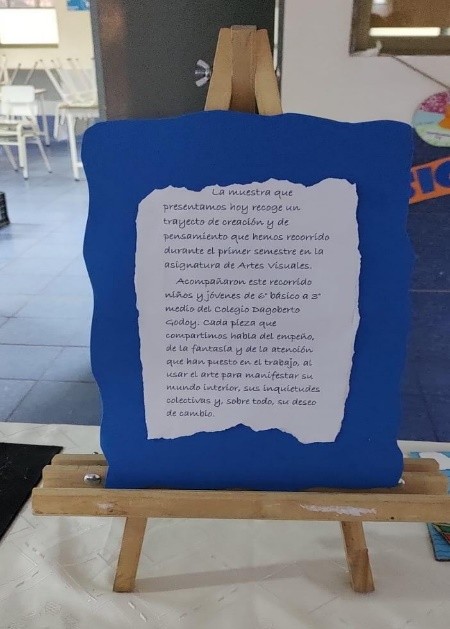 La muestra que
presentamos hoy recoge un
trayecto de creación y de
pensamiento que hemos recorrido
durante el primer semestre en la
asignatura de Artes Visuales.
Acompañaron este recorrido
niños y jóvenes de 6° básico a 3°
medio del Colegio Dagoberto
Godoy. Cada pieza que
compartimos habla del empeño,
de la fantasía y de la atención
que han puesto en el trabajo, al
usar el arte para manifestar su
mundo interior, sus inquietudes
colectivas y, sobre todo, su deseo
de cambio.